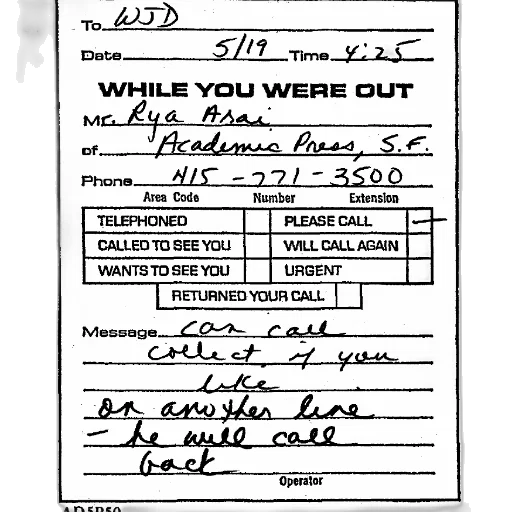 To WJD
Date 5/19 Time 4:25
WHILE YOU WERE OUT
Mr. Rya Arai
of Academic Press, S.F.
Phone 415-771-3500
Area Code Number Extension
TELEPHONED PLEASE CALL
CALLED TO SEE YOU WILL CALL AGAIN
WANTS TO SEE YOU URGENT
RETURNED YOUR CALL
Message can call
collect if you
like
on another line
- he will call
back
Operator